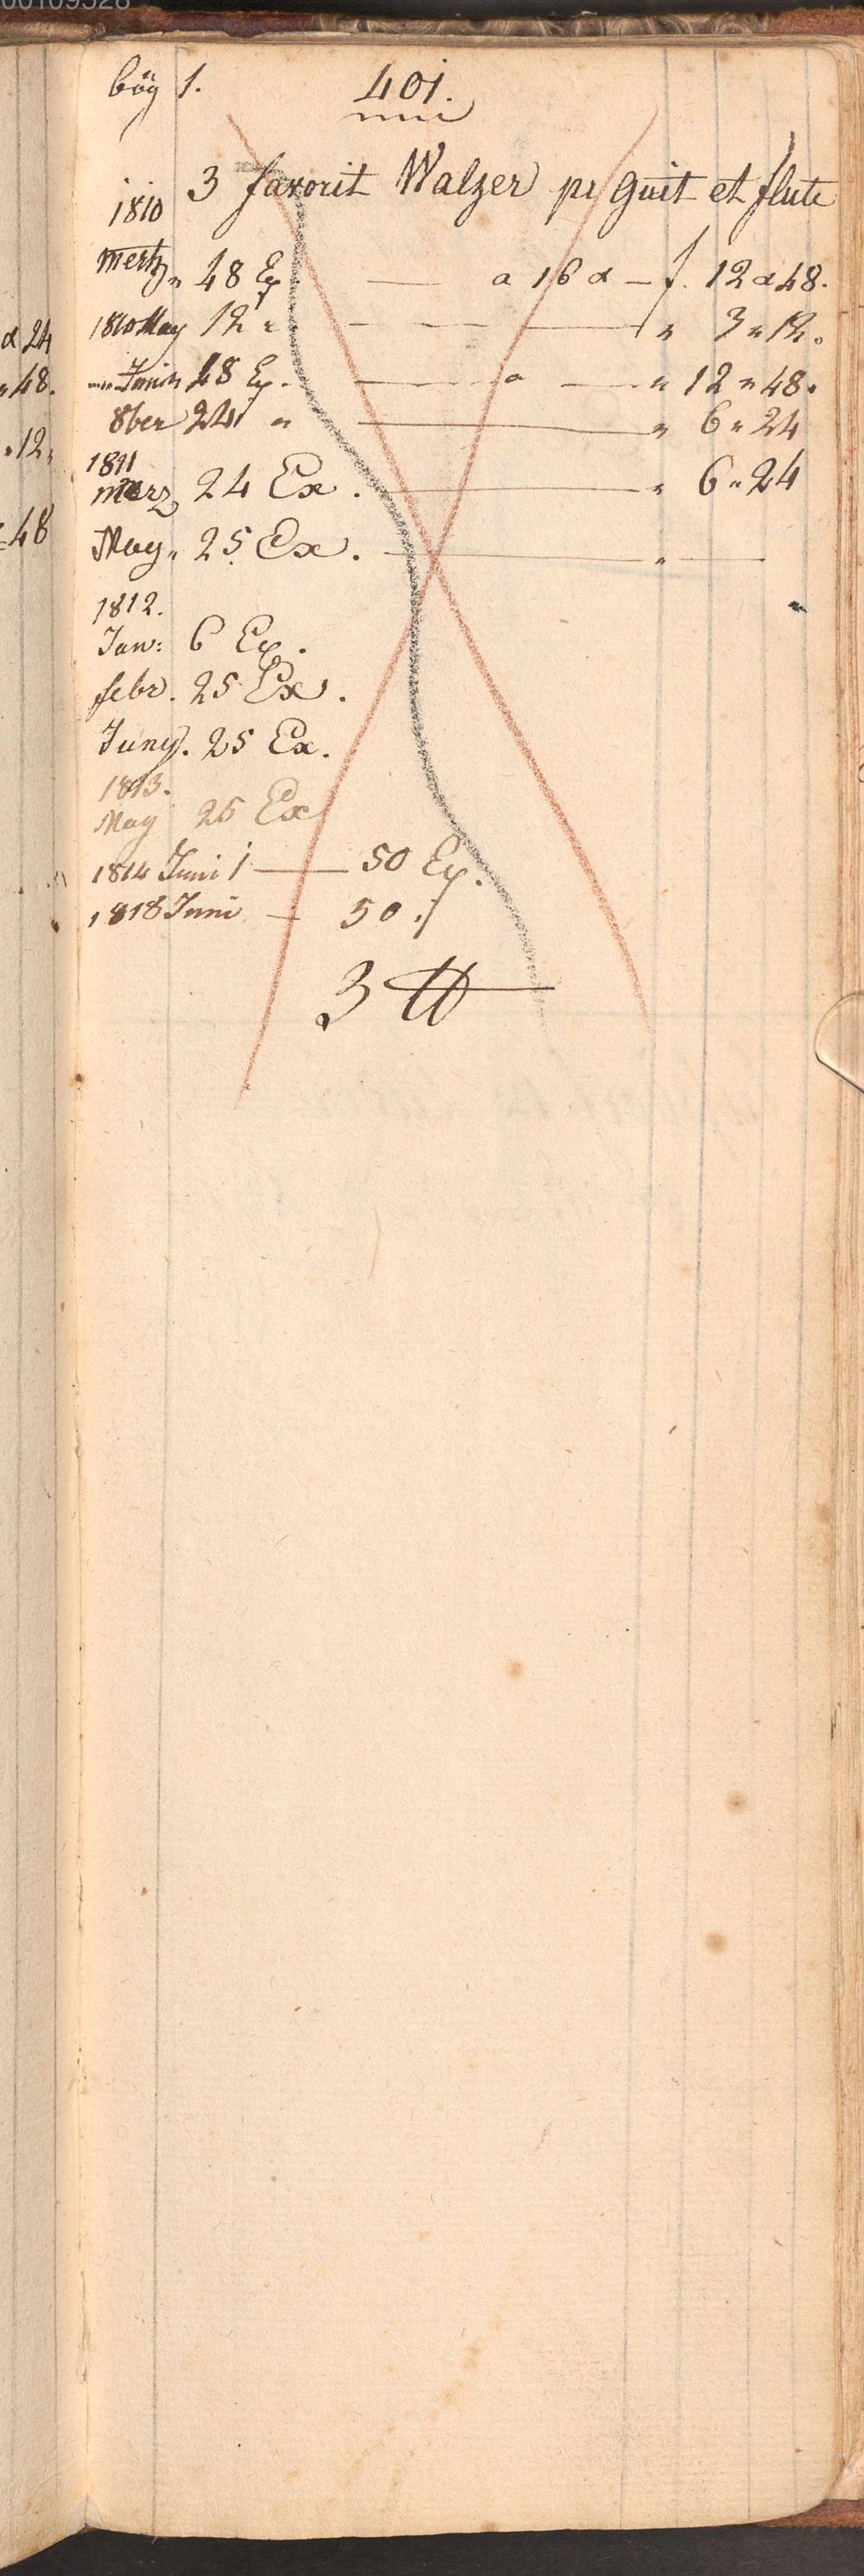 00109528
bög 1.
401.
3 favorit Walzer pr guit et flute
1810
mertz " 48 Ex. — a 16 x — f. 12 x 48.
1810 May 12 " — — — " 3 " 12.
— " Junii 48 Ex. — " — " 12 " 48.
8ber 24 " — " 6 " 24
1811
merz 24 Ex. — " 6 " 24
May " 25 Ex. — " —
1812.
Jan: 6 Ex.
febr. 25 Ex.
Juny. 25 Ex.
1813.
May 25 Ex
1814 Juni 1 — 50 Ex.
1818 Juni — 50.
3 ℔
x 24
" 48.
" 12 "
48